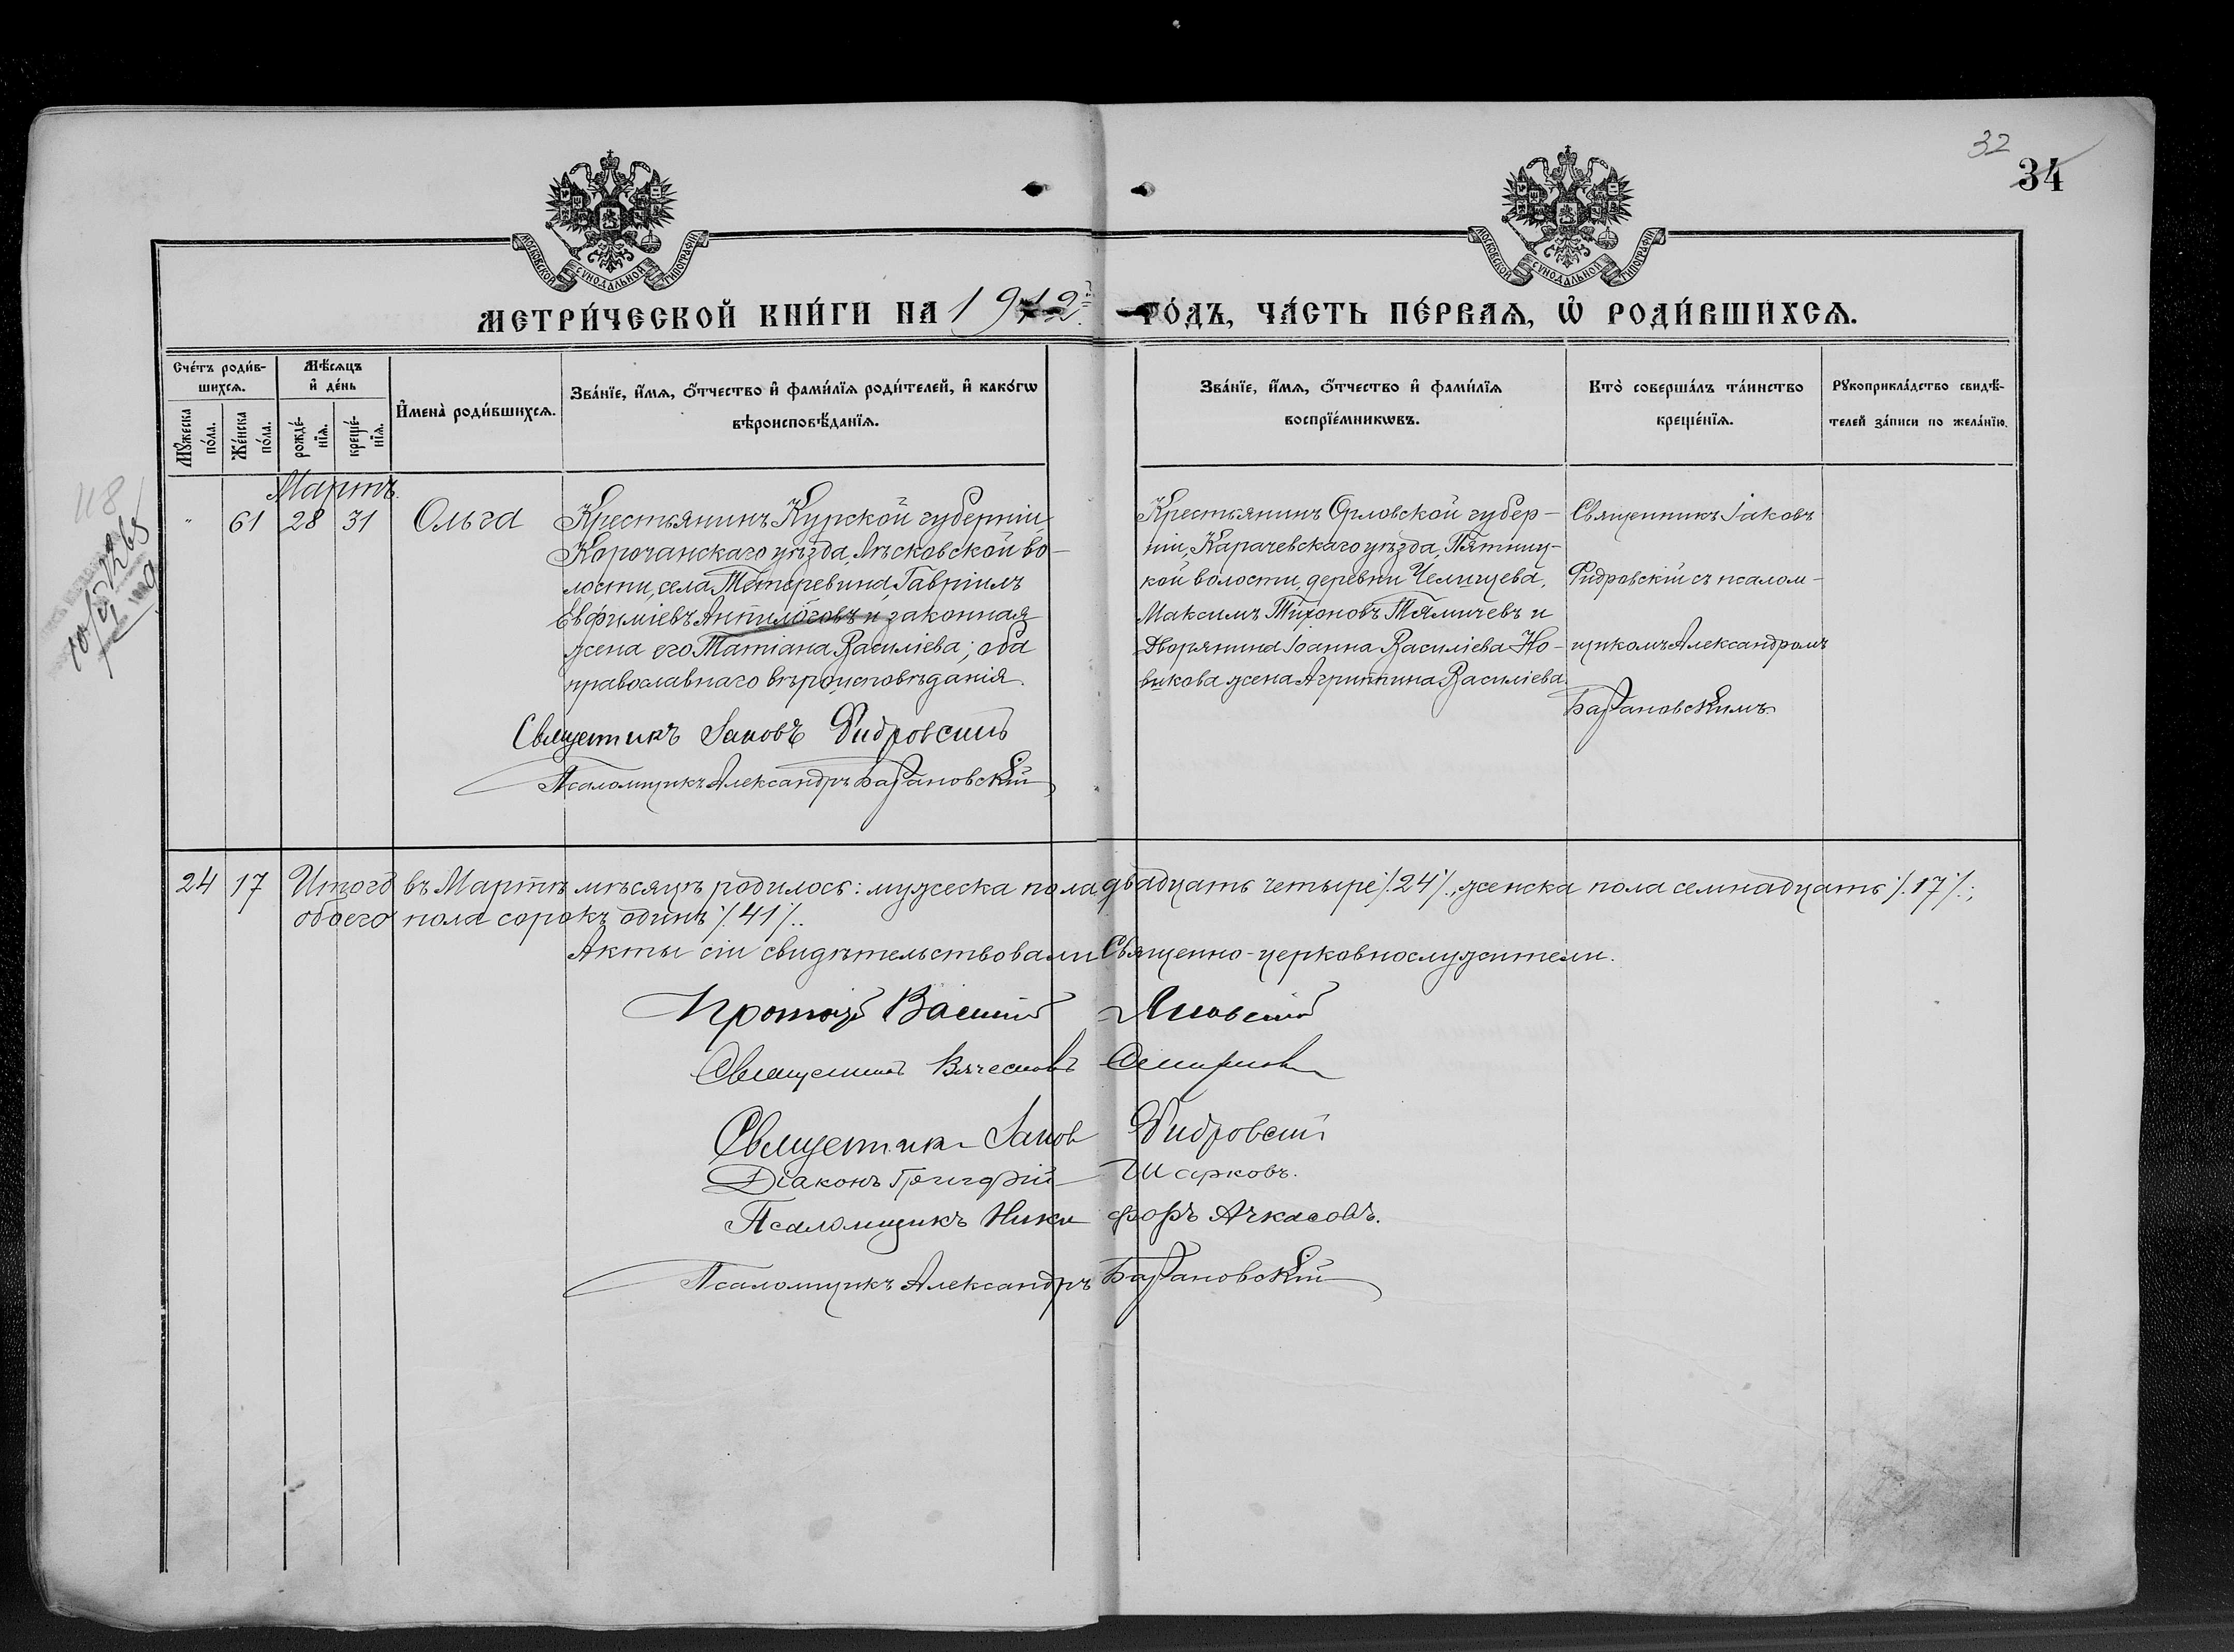 32
34
МОСКОВСКОЙ СѴНОДАЛЬНОЙ ТИПОГРАФІИ
МОСКОВСКОЙ СѴНОДАЛЬНОЙ ТИПОГРАФІИ
МЕТРИ́ЧЕСКОЙ КНИ́ГИ НА 1912 ГО́ДЪ, ЧА́СТЬ ПЕ́РВАѦ, Ѡ҆ РОДИ́ВШИХСѦ.
Сче́тъ роди́в-
шихсѧ.
Мꙋ́жеска по́ла.
Же́нска по́ла.
Мѣ́сѧцъ и҆ де́нь
рожде́-
нїѧ.
креще́-
нїѧ.
И҆мена̀ роди́вшихсѧ.
Зва́нїе, и҆́мѧ, ѻ҆́тчество и҆ фами́лїѧ роди́телей, и҆ како́гѡ
вѣроисповѣ́данїѧ.
Зва́нїе, и҆́мѧ, ѻ҆́тчество и҆ фами́лїѧ
воспрїе́мникѡвъ.
Кто̀ соверша́лъ та́инство
креще́нїѧ.
Рꙋкоприкла́дство свидѣ́-
телей за́писи по жела́нїю.
118
Мартъ.
" 61 28 31 Ольга
Крестьянинъ Курской губерніи
Корочанскаго уѣзда, Лѣсковской во-
лости, села Тетеревина, Гавріилъ
Евфиміевъ Антилоговъ и законная
жена его Татіана Василіева; оба
православнаго вѣроисповѣданія.
Священникъ Іаковъ Фидровскій
Псаломщикъ Александръ Барановскій
Крестьянинъ Орловской губер-
ніи, Карачевскаго уѣзда, Пятниц-
кой волости, деревни Челищева,
Максимъ Тихоновъ Тямичевъ и
Дворянина Іоанна Василіева Но-
викова жена Агриппина Василіева.
Священникъ Іаковъ
Фидровскій съ псалом-
щикомъ Александромъ
Барановскимъ
24 17 Итого въ Мартѣ мѣсяцѣ родилось: мужеска пола двадцать четыре /.24/., женска пола семнадцать /.17/.;
обоего пола сорокъ одинъ /.41/..
Акты сіи свидѣтельствовали Священно-церковнослужители.
Протоіер Василій Яновскій
Священникъ Вячеславъ Смирновъ
Священникъ Іаков Фидровскій
Діаконъ Григорій Шарковъ.
Псаломщикъ Никифоръ Ачкасовъ.
Псаломщикъ Александръ Барановскій